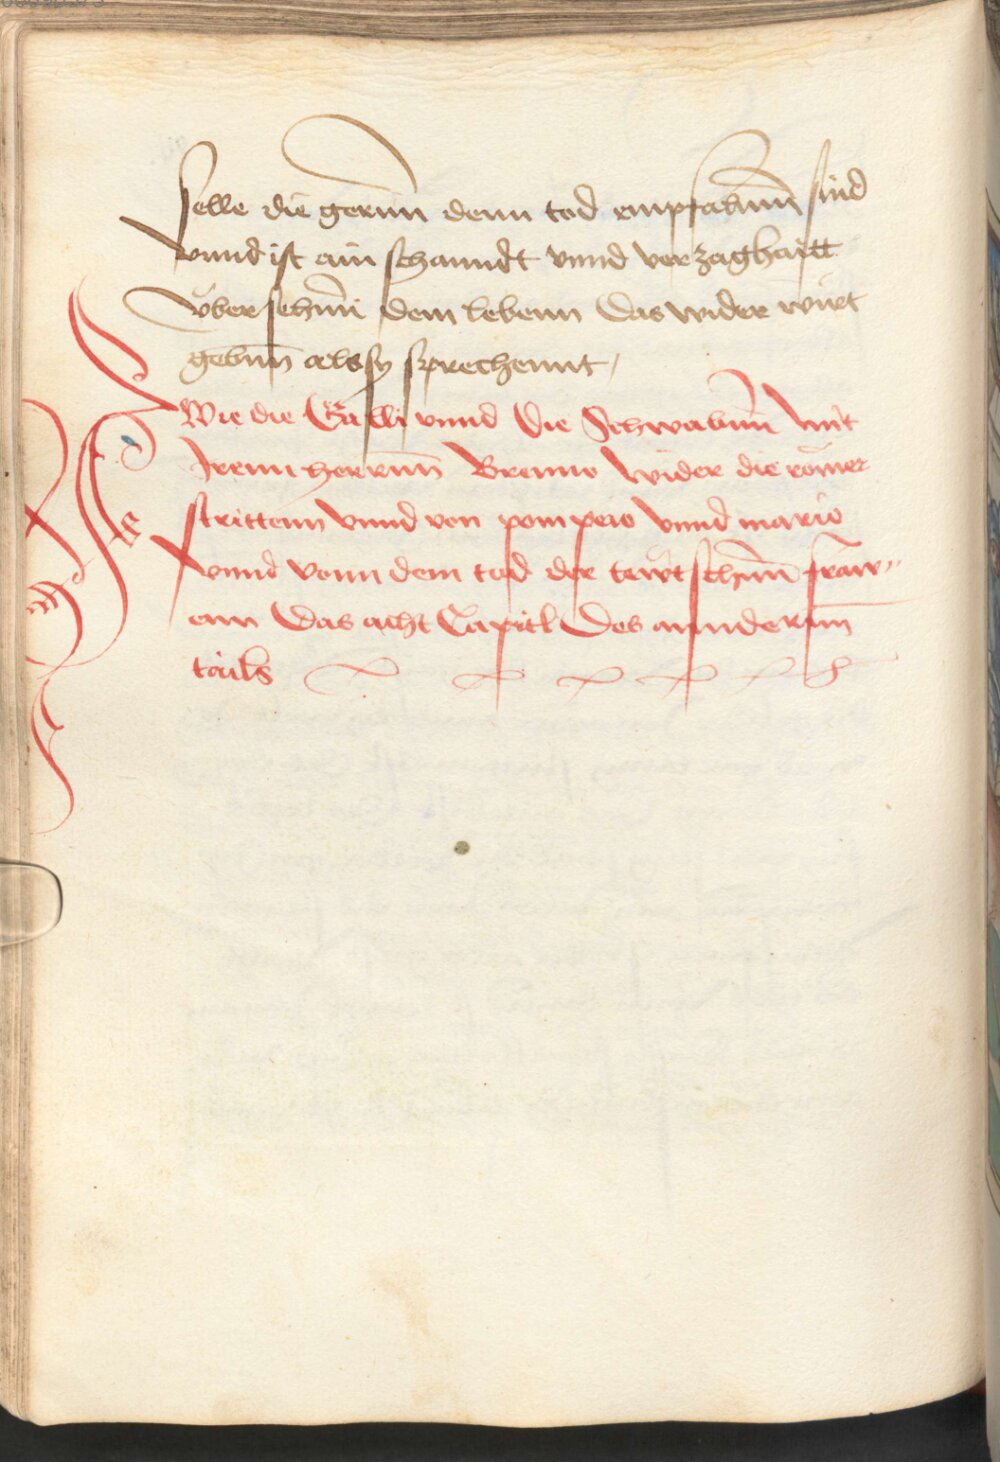 selle die gerum̄ denn tod empfahum̄ sind
vnnd ist ain schanndt vnnd verzaghaitt
v̈bersehm̄ dem lebenn Das wider würt
gebum̄ als sy sprechennt /
Wie die Galli vnnd Die Schwabum̄ Mit
Irenn herrum̄ Brenno wider die römer
strittenn Vnnd von pompeio Vnnd mario
vnnd vonn dem tod der tewtschm̄ fraw„
enn Das acht Capitl Des annderum̄
tails